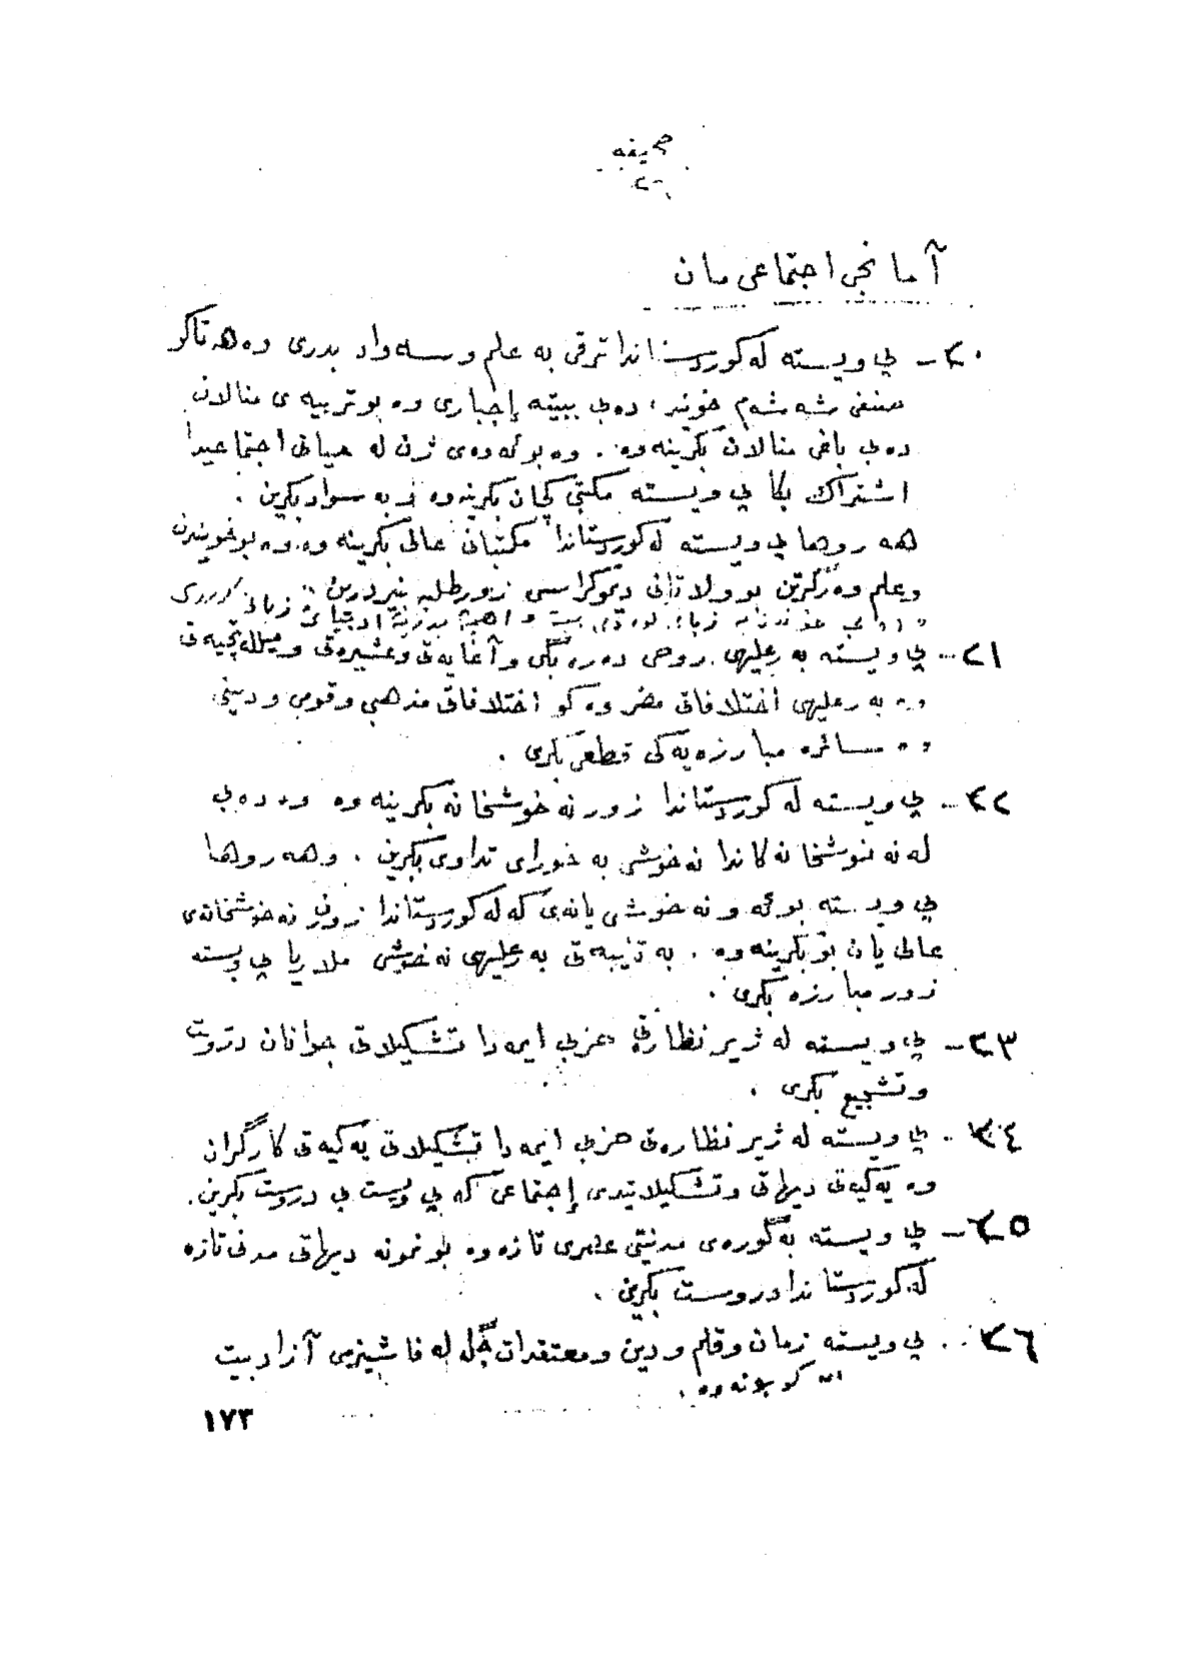 صحیفه
آمانجی اجتماعی مان
٢٠- پی ویسته له کوردستاندا ترقی به علم و سه واد بدری وه هه تاکو
صنفی شه شه م خویندن ده بی ببیته إجباری وه بو تربیه ی منالان
ده بی باغی منالان بکرینه وه . وه بو ئه وه ی ژن له حیاتی اجتماعیدا
اشتراک بکا پی ویسته مکتبی کچان بکرینه وه و به سواد بکرین .
هه روها پی ویسته له کوردستاندا مکتبانی عالی بکرینه وه وه بو خویندن
وعلم وه رگرتن بو ولاتانی دیموکراسی زور طلبه بنیردرین
٢١- پی ویسته به رعلیهی روحی ده ره بگی و آغایه تی وعشیره تی و
وه به رعلیهی اختلافاتی مضر وه کو اختلافاتی مذهبی وقومی ودینی
وه سائره مبارزه یه کی قطعی بکری .
٢٢- پی ویسته له کوردستاندا زور نه خوشخانه بکرینه وه وه ده بی
له نه خوشخانه کاندا نه خوشی به خورای تداوی بکرین . وهه روها
پی ویسته بو ئه و نه خوشی یانه ی که له کوردستاندا زورن نه خوشخانه ی
عالی یان بو بکرینه وه . به تایبه تی به رعلیهی نه خوشی ملاریا پی ویسته
زور مبارزه بکری .
٢٣- پی ویسته له ژیر نظارتی حزبی ایمه دا تشکیلاتی جوانان دروست
وتشجیع بکری .
٢٤- پی ویسته له ژیر نظاره تی حزبی ایمه دا تشکیلاتی یه کیه تی کارگران
وه یه کیه تی دیهاتی وتشکیلاتیدی إجتماعی که پی ویست بی دروست بکرین.
٢٥- پی ویسته به گوره ی مدنیتی عصری تازه وه بو نمونه دیهاتی مدنی تازه
له کوردستاندا دروست بکرین .
٢٦- پی ویسته زمان وقلم ودین ومعتقدات گه ل له فاشیزمی آزاد بیت
کو بونه وه .
١٧٣